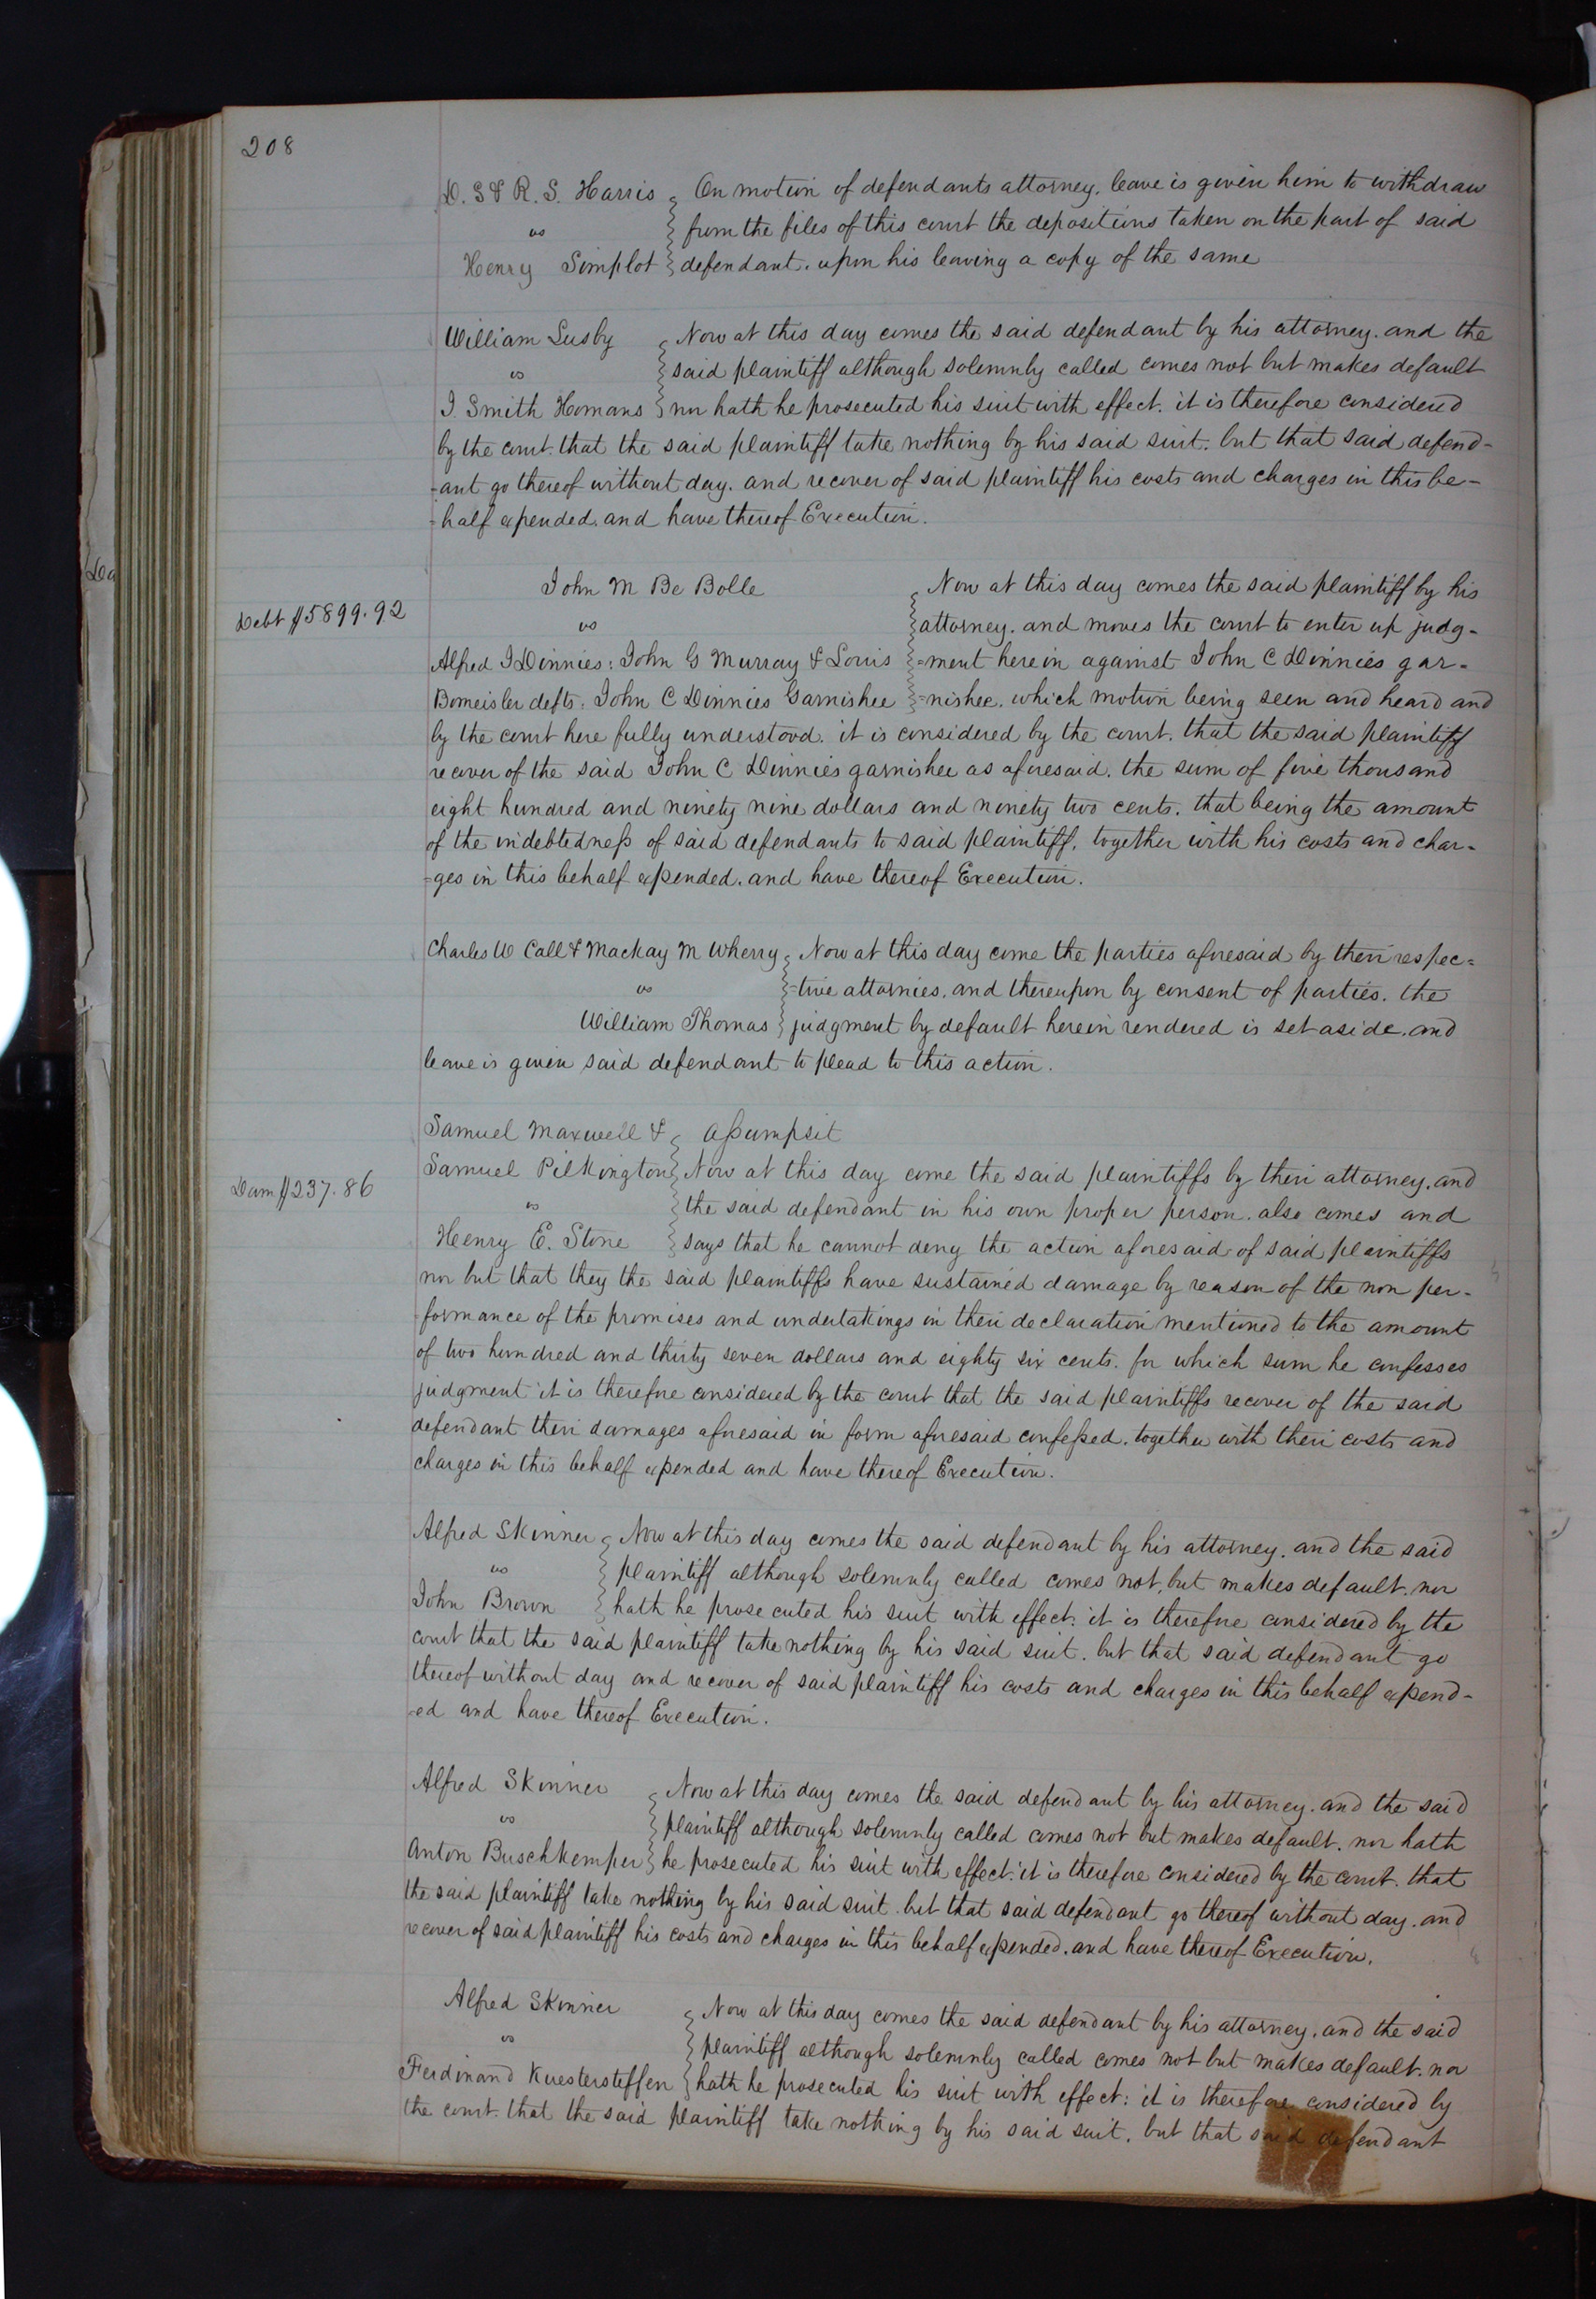 208
D. S & R. S. Harris On motion of defendants attorney, leave is given him to withdraw
vs from the files of this court the depositions taken on the part of said
Henry Simplot defendant. upon his leaving a copy of the same
William Lusby Now at this day comes the said defendant by his attorney. and the
vs said plaintiff although solemnly called comes not but makes default
I. Smith Homans nor hath he prosecuted his suit with effect. it is therefore considered
by the court. that the said plaintiff take nothing by his said suit. but that said defend-
-ant go thereof without day. and recover of said plaintiff his costs and charges in this be-
-half expended. and have thereof Execution.
John M Be Bolle Now at this day comes the said plaintiff by his
Debt $5899.92
vs attorney. and moves the court to enter up judg-
Alfred I Dinnies: John G Murray & Louis -ment herein against John C Dinnies gar-
Bomeisler defts. John C Dinnies Garnishee -nishee. which motion being seen and heard and
by the court here fully understood. it is considered by the court. that the said plaintiff
recover of the said John C Dinnies garnishee as aforesaid. the sum of five thousand
eight hundred and ninety nine dollars and ninety two cents. that being the amount
of the indebtedness of said defendants to said plaintiff, together with his costs and char-
-ges in this behalf expended. and have thereof Execution.
Charles W Call & Mackay M Wherry Now at this day come the parties aforesaid by their respec-
vs -tive attornies. and thereupon by consent of parties. the
William Thomas judgment by default herein rendered is set aside. and
leave is given said defendant to plead to this action.
Samuel Maxwell & Assumpsit
Samuel Pilkington Now at this day come the said plaintiffs by their attorney. and
Dam $237.86
vs the said defendant in his own proper person. also comes and
Henry E. Stone says that he cannot deny the action aforesaid of said plaintiffs
nor but that they the said plaintiffs have sustained damage by reason of the non per-
-formance of the promises and undertakings in their declaration mentioned to the amount
of two hundred and thirty seven dollars and eighty six cents. for which sum he confesses
judgment: it is therefore considered by the court that the said plaintiffs recover of the said
defendant their damages aforesaid in form aforesaid confessed. together with their costs and
charges in this behalf expended and have thereof Execution.
Alfred Skinner Now at this day comes the said defendant by his attorney. and the said
vs plaintiff although solemnly called comes not, but makes default. nor
John Brown hath he prosecuted his suit with effect: it is therefore considered by the
court that the said plaintiff take nothing by his said suit. but that said defendant go
thereof without day and recover of said plaintiff his costs and charges in this behalf expend-
-ed and have thereof Execution.
Alfred Skinner Now at this day comes the said defendant by his attorney. and the said
vs plaintiff although solemnly called comes not but makes default. nor hath
Anton Buschkemper he prosecuted his suit with effect: it is therefore considered by the court. that
the said plaintiff take nothing by his said suit. but that said defendant go thereof without day. and
recover of said plaintiff his costs and charges in this behalf expended. and have thereof Execution.
Alfred Skinner Now at this day comes the said defendant by his attorney. and the said
vs plaintiff although solemnly called comes not but makes default. nor
Ferdinand Kuestersteffen hath he prosecuted his suit with effect: it is therefore considered by
the court. that the said plaintiff take nothing by his said suit. but that said defendant